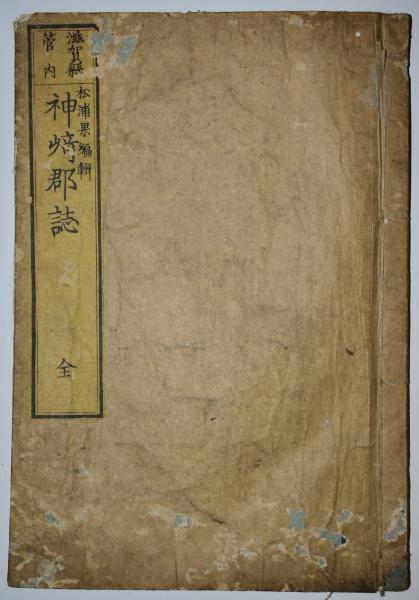 滋賀縣
管内
松浦果編輯
神﨑郡誌
全